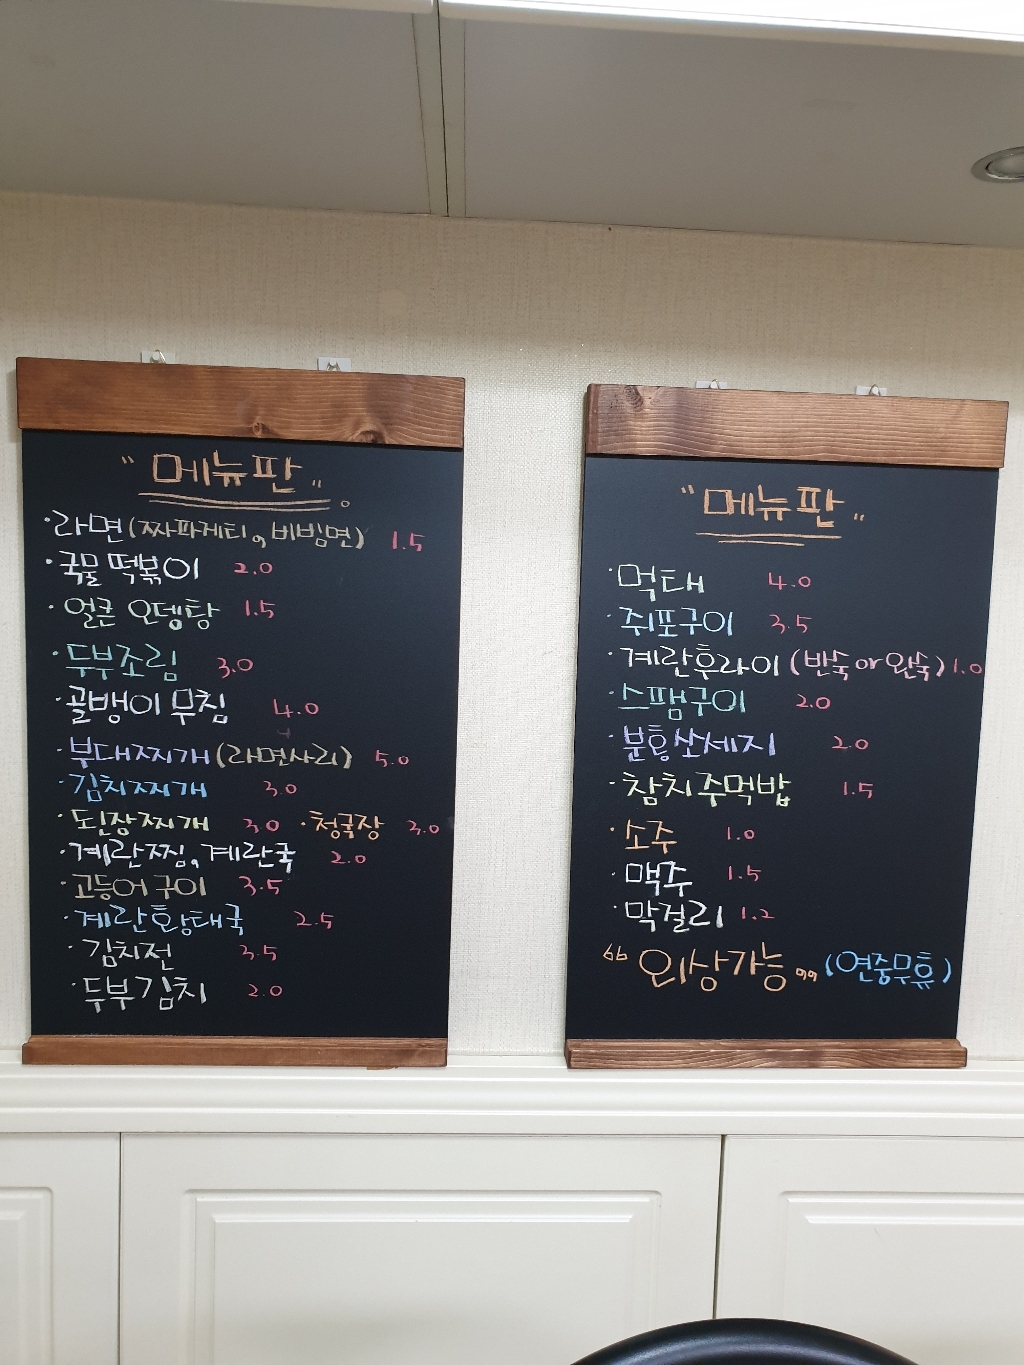 "메뉴판"
·라면(짜파게티, 비빔면) 1.5
·국물 떡볶이 2.0
·얼큰 오뎅탕 1.5
·두부조림 3.0
·골뱅이 무침 4.0
·부대찌개(라면사리) 5.0
·김치찌개 3.0
·된장찌개 3.0 ·청국장 3.0
·계란찜, 계란국 2.0
·고등어구이 3.5
·계란황태국 2.5
·김치전 3.5
·두부김치 2.0
"메뉴판"
·먹태 4.0
·쥐포구이 3.5
·계란후라이(반숙or완숙) 1.0
·스팸구이 2.0
·분홍쏘세지 2.0
·참치주먹밥 1.5
·소주 1.0
·맥주 1.5
·막걸리 1.2
"외상가능" (연중무휴)